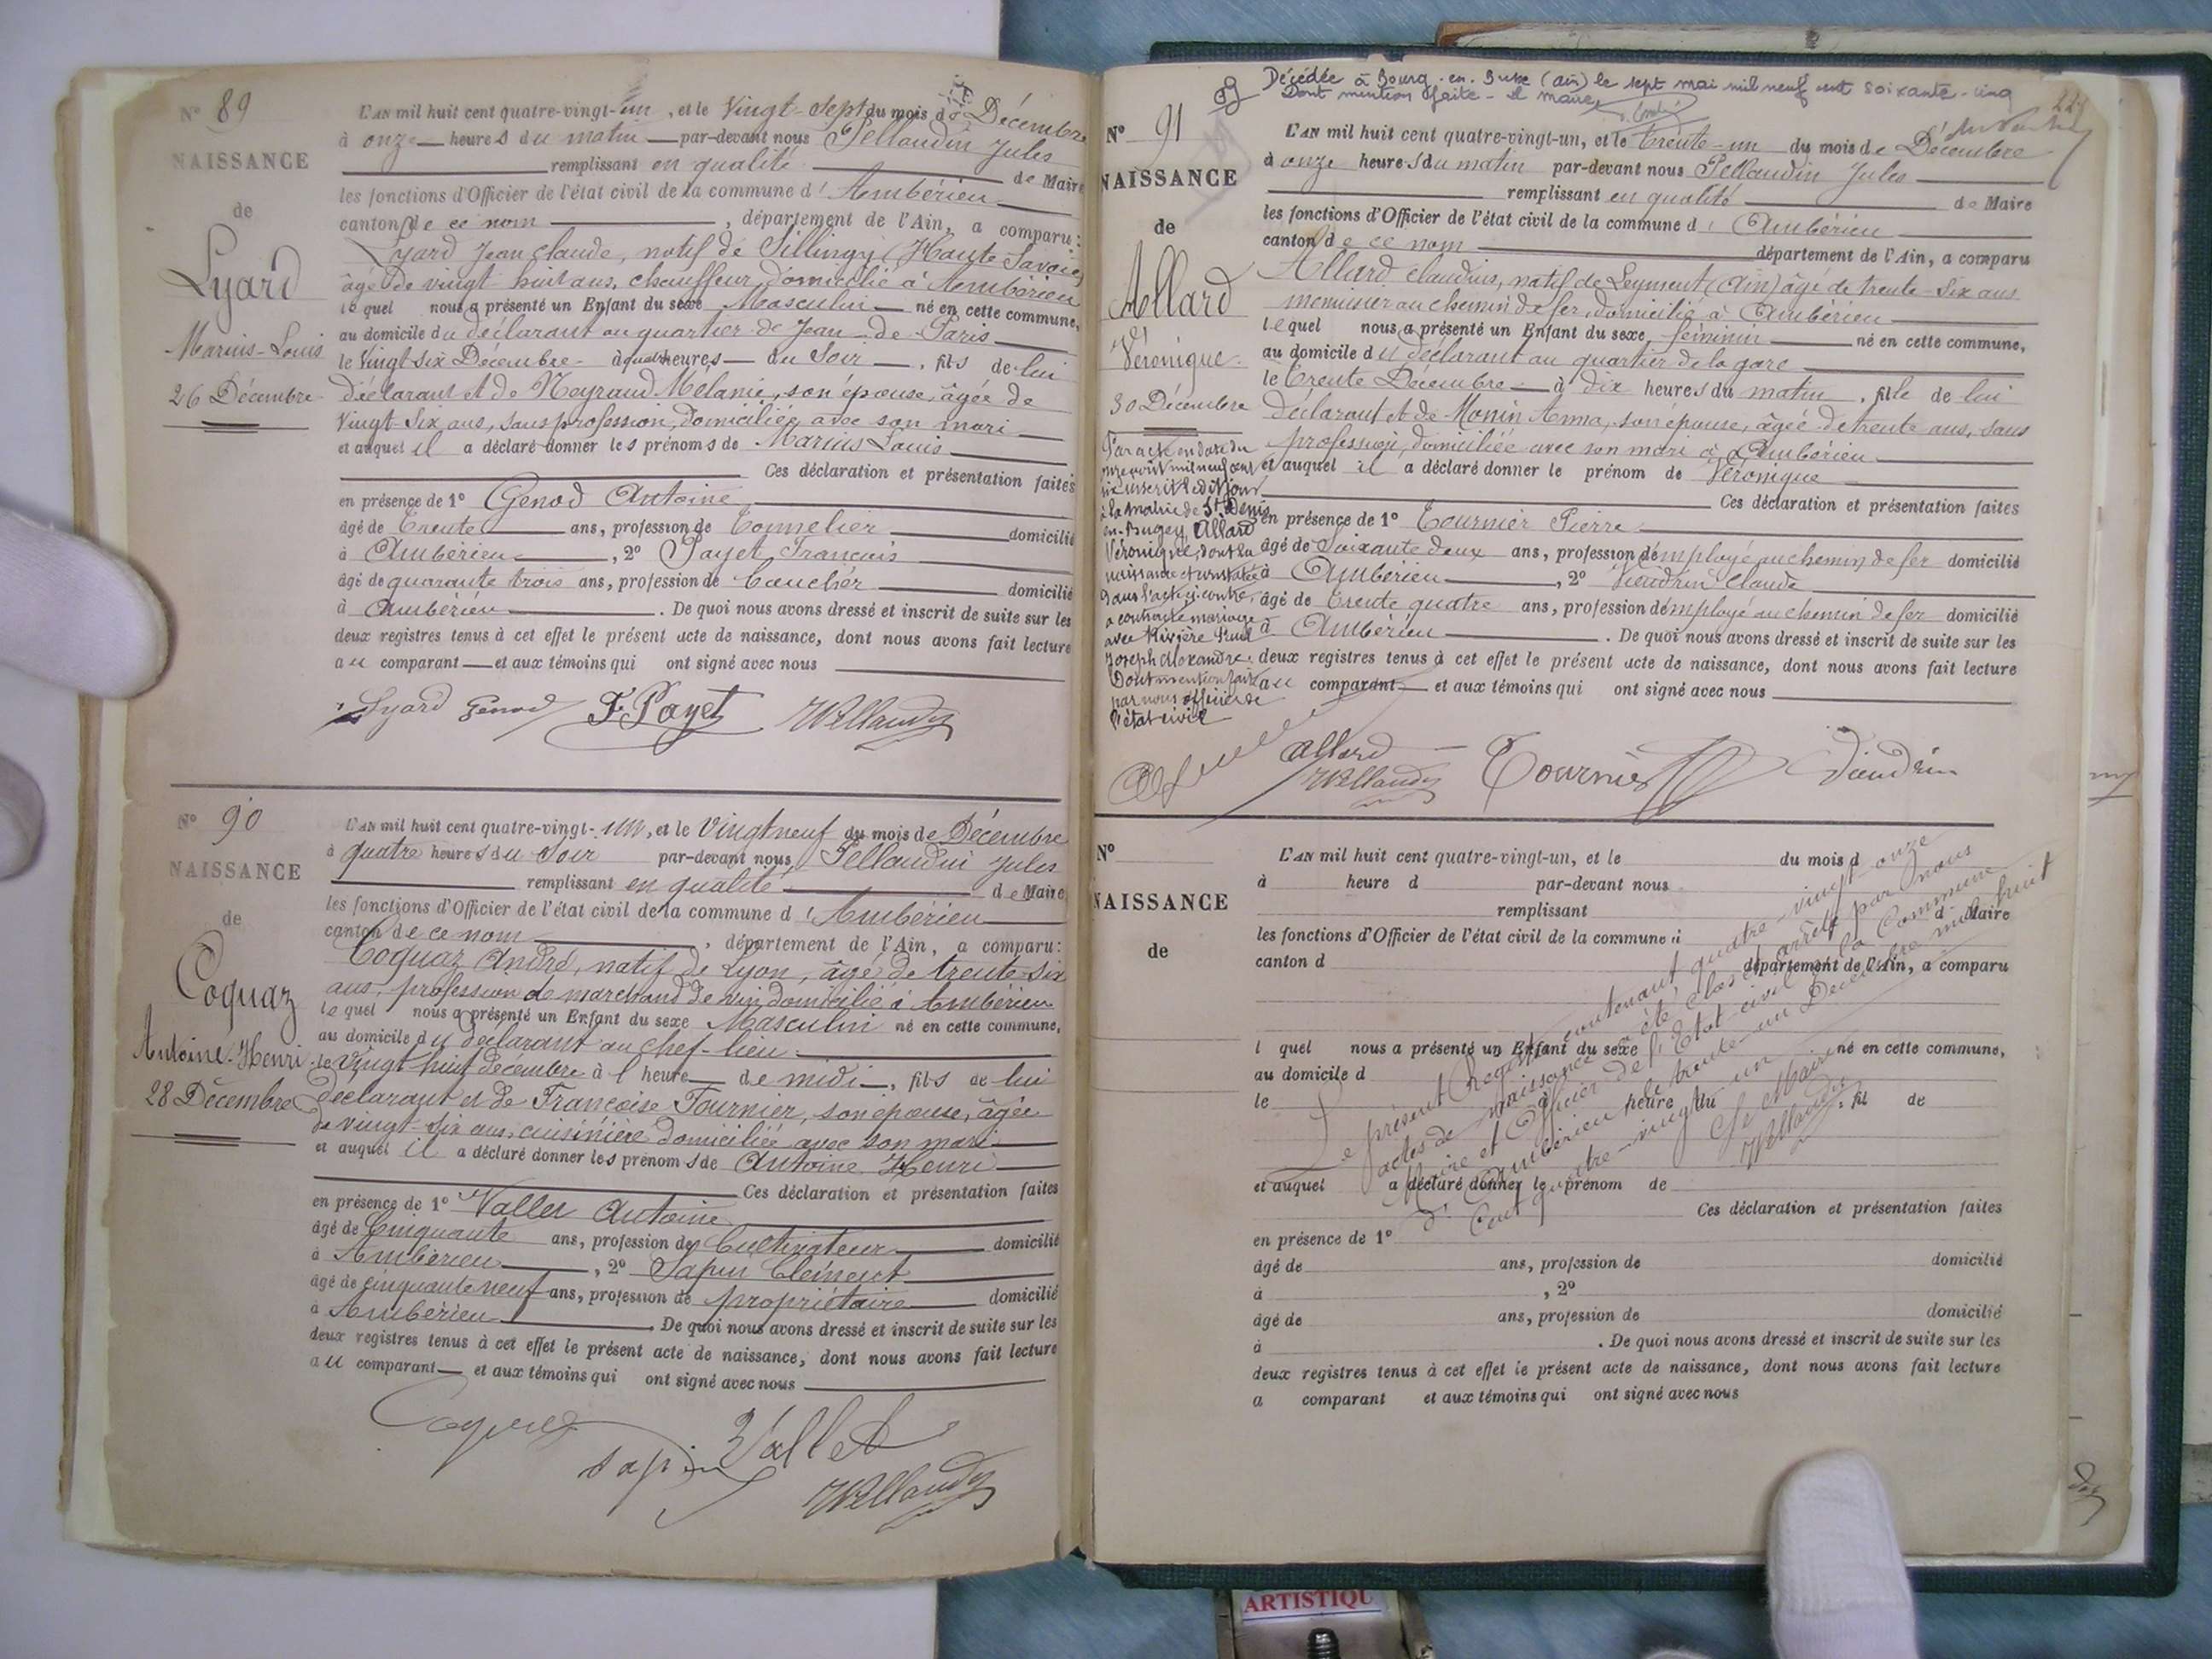 N° 89
NAISSANCE
de
Lyard
Marius-Louis
26 Décembre
L'AN mil huit cent quatre-vingt-un, et le Vingt-Sept du mois de Décembre
à onze heures du matin par-devant nous Pellaudin Jules
remplissant en qualité de Maire
les fonctions d'Officier de l'état civil de la commune d'Ambérieu
canton de ce nom, département de l'Ain, a comparu:
Lyard Jean Claude, natif de Sillingy (Haute Savoie)
âgé de vingt-huit ans, chauffeur, domicilié à Ambérieu
lequel nous a présenté un Enfant du sexe Masculin né en cette commune,
au domicile du déclarant au quartier de Jean-de-Paris
le Vingt six Décembre à quatre heures du Soir, fils de lui
déclarant et de Neyraud Mélanie, son épouse, âgée de
Vingt-Six ans, sans profession, domiciliée avec son mari
et auquel il a déclaré donner les prénoms de Marius Louis
Ces déclaration et présentation faites
en présence de 1° Genod Antoine
âgé de Trente ans, profession de Tonnelier domicilié
à Ambérieu, 2° Payet François
âgé de quarante trois ans, profession de Boucher domicilié
à Ambérieu. De quoi nous avons dressé et inscrit de suite sur les
deux registres tenus à cet effet le présent acte de naissance, dont nous avons fait lecture
au comparant et aux témoins qui ont signé avec nous
Lyard Genod F. Payet
N° 90
NAISSANCE
de
Coquaz
Antoine-Henri
28 Décembre
L'AN mil huit cent quatre-vingt-un, et le Vingt neuf du mois de Décembre
à quatre heures du Soir par-devant nous Pellaudin Jules
remplissant en qualité de Maire
les fonctions d'Officier de l'état civil de la commune d'Ambérieu
canton de ce nom, département de l'Ain, a comparu:
Coquaz André, natif de Lyon, âgé de trente-six
ans, profession de marchand de vin domicilié à Ambérieu
lequel nous a présenté un Enfant du sexe Masculin né en cette commune,
au domicile du déclarant au chef-lieu
le Vingt huit décembre à l heure de midi, fils de lui
déclarant et de Françoise Fournier, son épouse, âgée
de vingt-six ans, cuisinière domiciliée avec son mari
et auquel il a déclaré donner les prénoms de Antoine Henri
Ces déclaration et présentation faites
en présence de 1° Vallet Antoine
âgé de Cinquante ans, profession de Cultivateur domicilié
à Ambérieu, 2° Sapin Clément
âgé de cinquante neuf ans, profession de propriétaire domicilié
à Ambérieu. De quoi nous avons dressé et inscrit de suite sur les
deux registres tenus à cet effet le présent acte de naissance, dont nous avons fait lecture
au comparant et aux témoins qui ont signé avec nous
Coquaz
Sapin Vallet
Décédée à Bourg-en-Bresse (Ain) le sept mai mil neuf cent soixante-cinq
Dont mention faite - Le maire,
N° 91
NAISSANCE
de
Allard
Véronique
30 Décembre
Par acte en date du
onze août mil neuf cent
six inscrit ledit jour
à la mairie de St Denis
en-Bugey, Allard
Véronique, dont la
naissance est constatée
dans l'acte ci-contre,
a contracté mariage
avec Rivière Paul
Joseph Alexandre.
Dont mention faite
par nous officier de
l'état civil
L'AN mil huit cent quatre-vingt-un, et le Trente-un du mois de Décembre
à onze heures du matin par-devant nous Pellaudin Jules
remplissant en qualité de Maire
les fonctions d'Officier de l'état civil de la commune d'Ambérieu
canton de ce nom département de l'Ain, a comparu
Allard Claudius, natif de Leyment (Ain) âgé de trente-six ans
menuisier au chemin de fer, domicilié à Ambérieu
lequel nous a présenté un Enfant du sexe féminin né en cette commune,
au domicile du déclarant au quartier de la gare
le Trente Décembre à dix heures du matin, fille de lui
déclarant et de Monin Anna, son épouse, âgée de trente ans, sans
profession, domiciliée avec son mari à Ambérieu
et auquel il a déclaré donner le prénom de Véronique
Ces déclaration et présentation faites
en présence de 1° Tournier Pierre
âgé de Soixante deux ans, profession d'employé au chemin de fer domicilié
à Ambérieu, 2° Vieudrin Claude
âgé de Trente quatre ans, profession d'employé au chemin de fer domicilié
à Ambérieu. De quoi nous avons dressé et inscrit de suite sur les
deux registres tenus à cet effet le présent acte de naissance, dont nous avons fait lecture
au comparant et aux témoins qui ont signé avec nous
Allard Tournier Vieudrin
N°
NAISSANCE
de
L'AN mil huit cent quatre-vingt-un, et le du mois d
à heure d par-devant nous
remplissant d Maire
les fonctions d'Officier de l'état civil de la commune d
canton d département de l'Ain, a comparu
l quel nous a présenté un Enfant du sexe né en cette commune,
au domicile d
le à heure du, fil de
et auquel a déclaré donner le prénom de
Ces déclaration et présentation faites
en présence de 1°
âgé de ans, profession de domicilié
à, 2°
âgé de ans, profession de domicilié
à. De quoi nous avons dressé et inscrit de suite sur les
deux registres tenus à cet effet le présent acte de naissance, dont nous avons fait lecture
a comparant et aux témoins qui ont signé avec nous
Le présent Registre contenant quatre-vingt-onze
actes de naissance a été clos et arrêté par nous
Maire et Officier de l'Etat civil de la Commune
d'Ambérieu le trente-un Décembre mil huit
cent quatre-vingt-un
Le Maire
ARTISTIQU